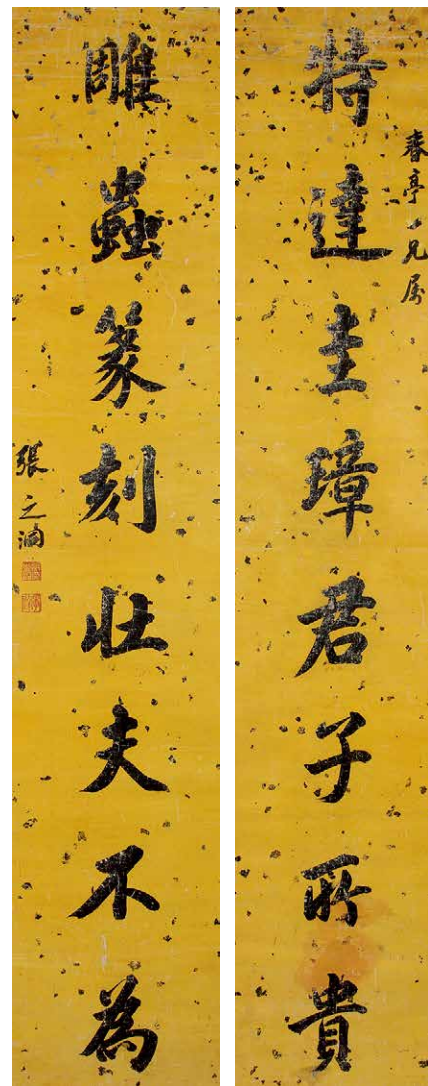 特達圭璋君子所貴
春亭一兄屬
雕蟲篆刻壯夫不為
張之洞